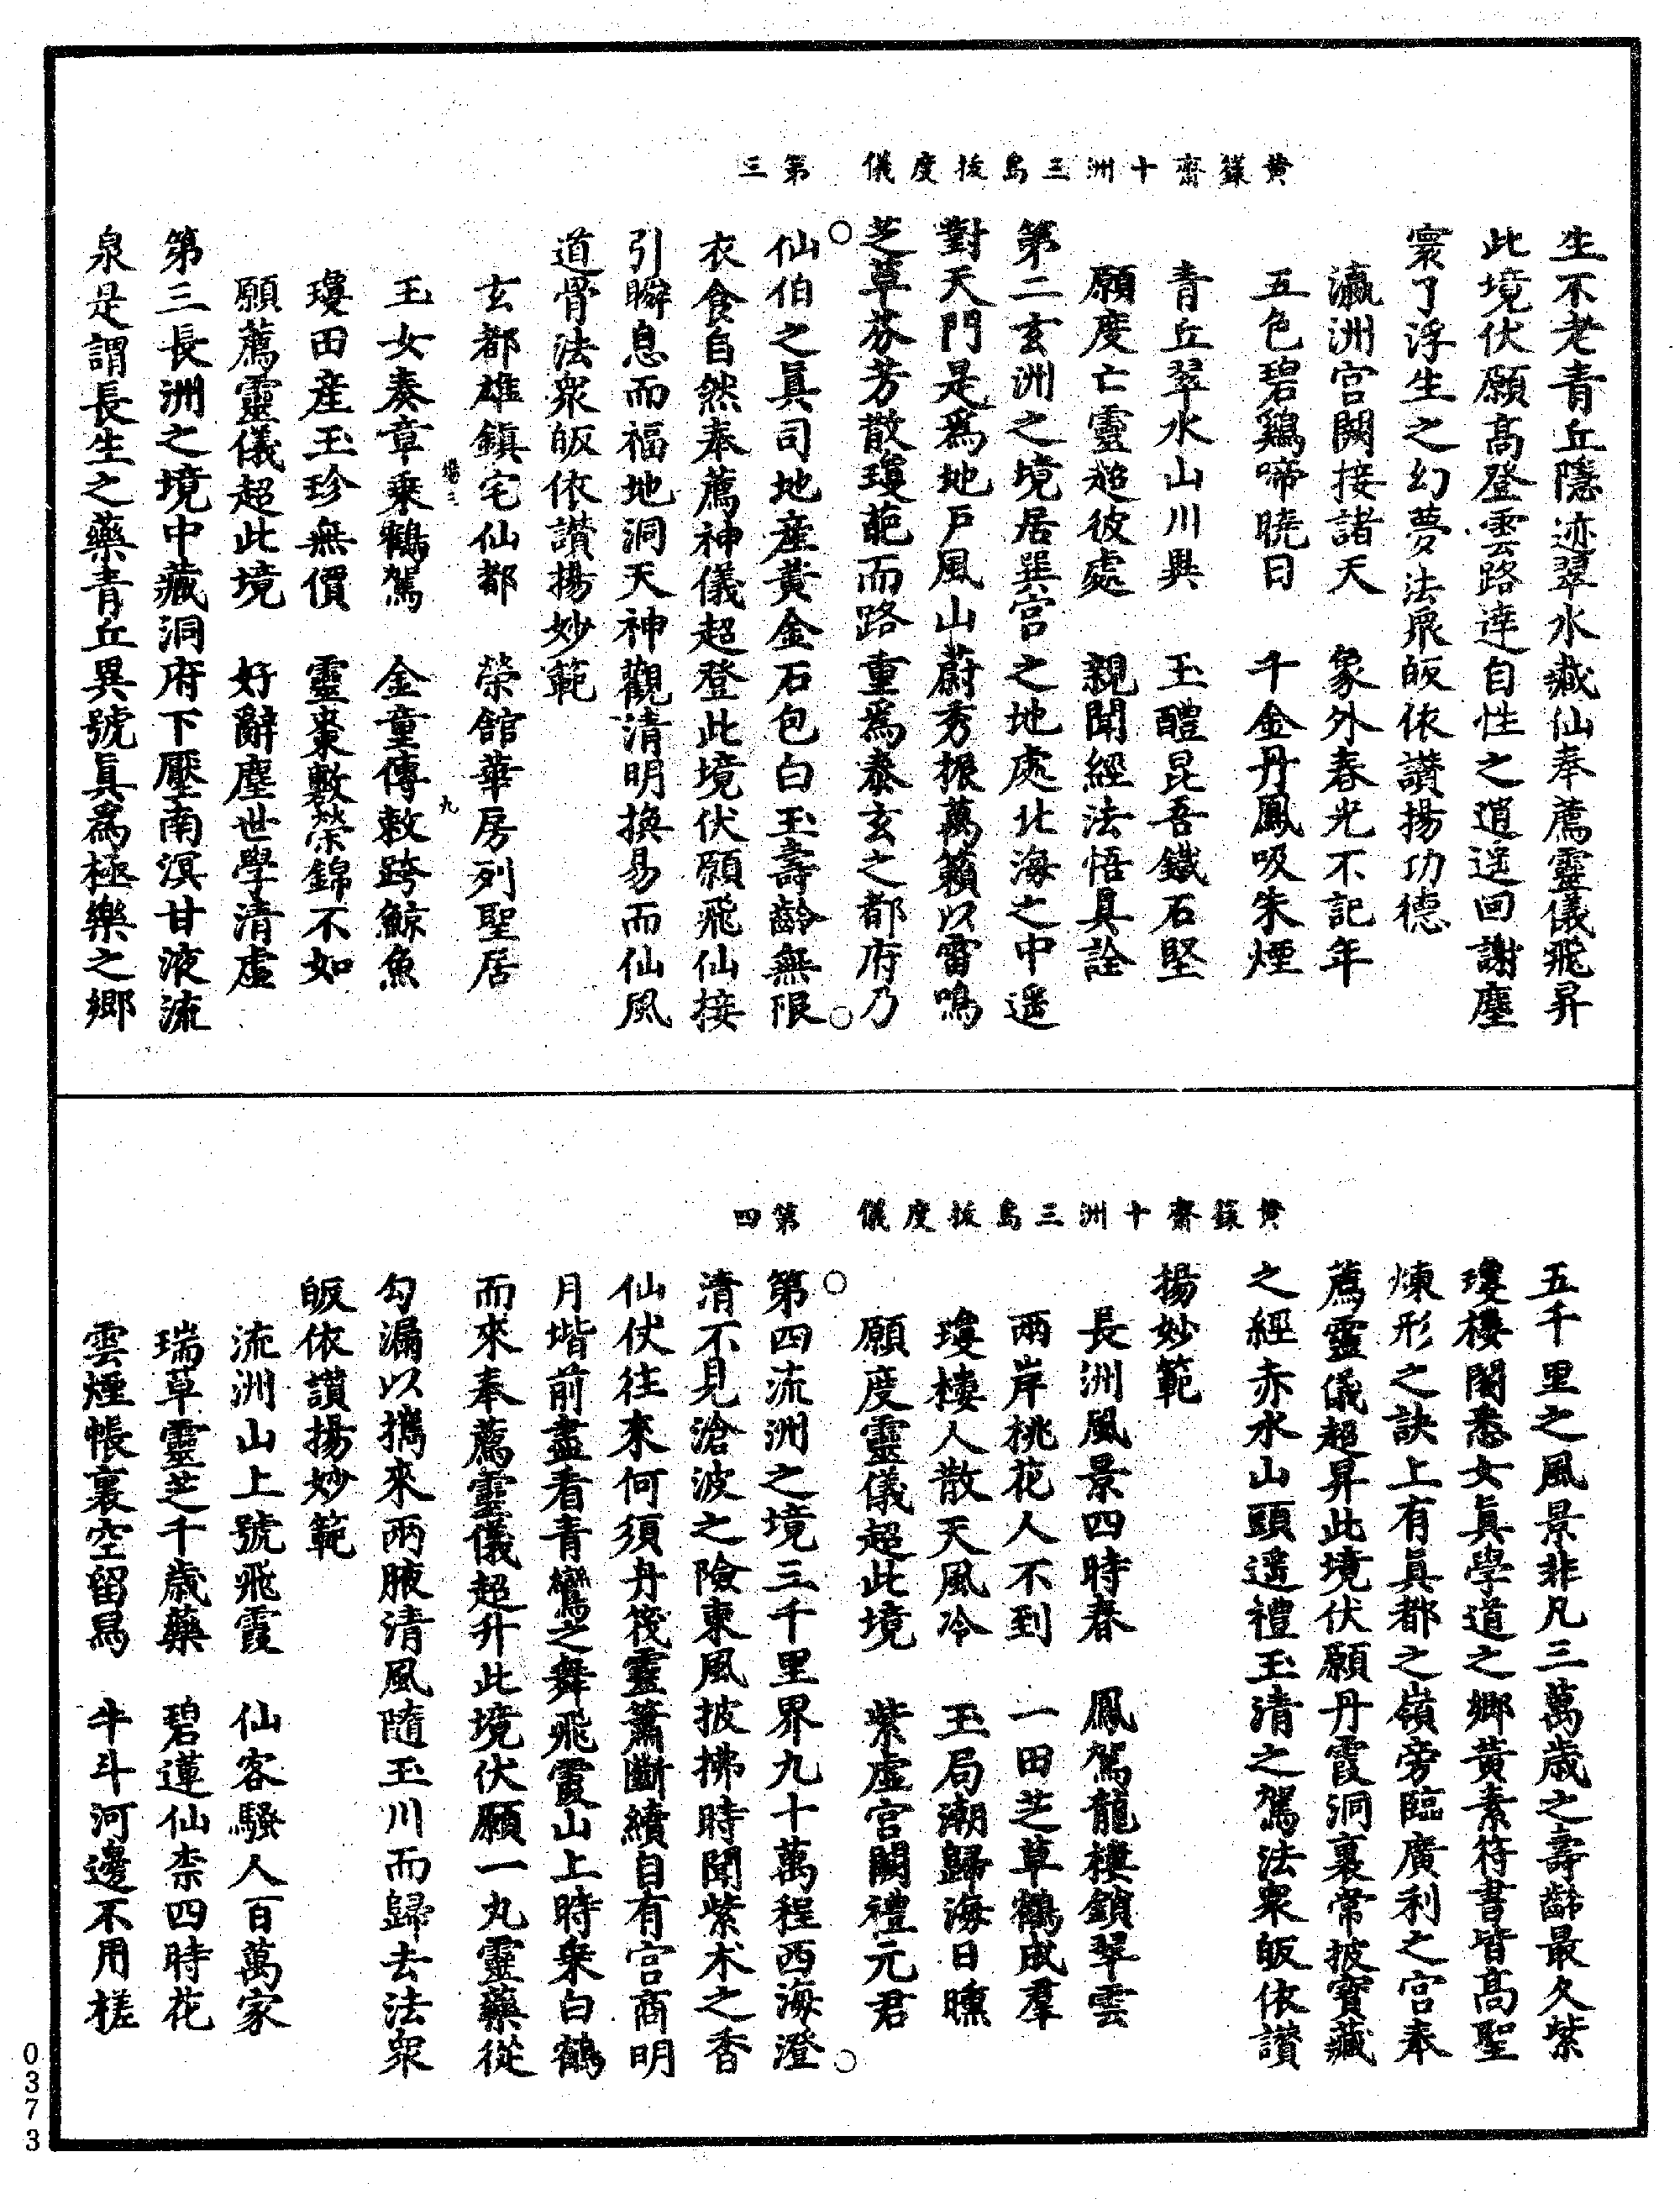 黄籙齋十洲三島拔度儀　第三
生不老青丘隱迹翠水藏仙奉薦靈儀飛昇
此境伏願高登雲路達自性之逍遥回謝塵
寰了浮生之幻夢法衆皈依讃揚功德
瀛洲宫闕接諸天　象外春光不記年
五色碧鷄啼曉日　千金丹鳳吸朱煙
青丘翠水山川異　玉醴昆吾鐵石堅
願度亡靈超彼處　親聞經法悟真詮
第二玄洲之境居巽宫之地處北海之中遥
對天門是爲地户風山蔚秀振萬籟以雷鳴
芝草芬芳散瓊葩而路重爲泰玄之都府乃
仙伯之真司地産黄金石包白玉壽齡無限
衣食自然奉薦神儀超登此境伏願飛仙接
引瞬息而福地洞天神觀清明換易而仙風
道骨法衆皈依讃揚妙範
玄都雄鎮宅仙都　榮館華房列聖居
玉女奏章乗鶴駕　金童傳敕跨鯨魚
瓊田産玉珍無價　靈棗敷榮錦不如
願薦靈儀超此境　好辭塵世學清虚
第三長洲之境中藏洞府下壓南溟甘液流
泉是謂長生之藥青丘異號真爲極樂之鄉
黄籙齋十洲三島拔度儀　第四
五千里之風景非凡三萬歲之壽齡最久紫
瓊樓閣悉女真學道之鄉黄素符書皆高聖
煉形之訣上有真都之嶺旁臨廣利之宫奉
薦靈儀超昇此境伏願丹霞洞裏常披寶藏
之經赤水山頭遥禮玉清之駕法衆皈依讃
揚妙範
長洲風景四時春　鳳駕龍樓鎖翠雲
兩岸桃花人不到　一田芝草鶴成羣
瓊樓人散天風冷　玉局潮歸海日曛
願度靈儀超此境　紫虚宫闕禮元君
第四流洲之境三千里界九十萬程西海澄
清不見滄波之險東風披拂時聞紫朮之香
仙伏往來何須丹筏靈簫斷續自有宫商明
月堦前盡看青鸞之舞飛霞山上時乗白鶴
而來奉薦靈儀超升此境伏願一丸靈藥從
勾漏以攜來兩腋清風隨玉川而歸去法衆
皈依讃揚妙範
流洲山上號飛霞　仙客騷人百萬家
瑞草靈芝千歲藥　碧蓮仙柰四時花
雲煙帳裏空留舄　牛斗河邊不用槎
0373